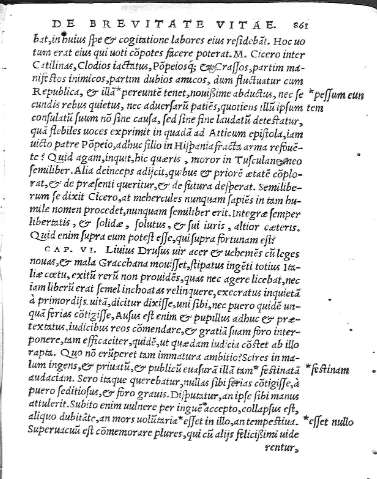 DE BREVITATE VITAE. 861
bãt, in huius spe & cogitatione labores eius residebãt. Hoc uo
tum erat eius qui uoti cõpotes facere poterat. M. Cicero inter
Catilinas, Clodios iactatus, Põpeiosq; & Crassos, partim ma-
nifestos inimicos, partim dubios amicos, dum fluctuatur cum
Republica, & illã *pereuntẽ tenet, nouissime abductus, nec se
*pessum eun
cundis rebus quietus, nec aduersarũ patiẽs, quotiens illũ ipsum
tem
consulatũ suum nõ sine causa, sed sine fine laudatũ detestatur,
quã flebiles uoces exprimit in quadã ad Atticum epistola, iam
uicto patre Põpeio, adhuc filio in Hispania fracta arma refoue-
te? Quid agam, inquit, hic quæris, moror in Tusculano meo
semiliber. Alia deinceps adijcit, quibus & priorẽ ætatẽ cõplo-
rat, & de præsenti queritur, & de futura desperat. Semilibe-
rum se dixit Cicero, at mehercules nunquam sapiẽs in tam hu
mile nomen procedet, nunquam semiliber erit. Integræ semper
libertatis, & solidæ, solutus, & sui iuris, altior cæteris.
Quid enim supra eum potest esse, qui supra fortunam est?
CAP. VI. Liuius Drusus uir acer & uehemẽs cũ leges
nouas, & mala Gracchana mouisset, stipatus ingẽti totius Ita-
liæ cœtu, exitũ rerũ non prouidẽs, quas nec agere licebat, nec
iam liberũ erat semel inchoatas relinquere, execratus inquietã
à primordijs uitã, dicitur dixisse, uni sibi, nec puero quidẽ un-
quã ferias cõtigisse, Ausus est enim & pupillus adhuc & præ-
textatus iudicibus reos cõmendare, & gratiã suam foro inter-
ponere, tam efficaciter, quidẽ, ut quædam iudicia cõstet ab illo
rapta. Quo nõ erũperet tam immatura ambitio? Scires in ma-
lum ingens, & priuatũ, & publicũ euasurã illã tam *festinatã
*festinam
audaciam. Sero itaque querebatur, nullas sibi ferias cõtigisse, à
puero seditiosus, & foro grauis. Disputatur, an ipse sibi manus
attulerit. Subito enim uulnere per inguẽ accepto, collapsus est,
aliquo dubitãte, an mors uolũtaria *esset in illo, an tempestiua.
*esset nullo
Superuacuũ est cõmemorare plures, qui cũ alijs felicissimi uide
rentur,